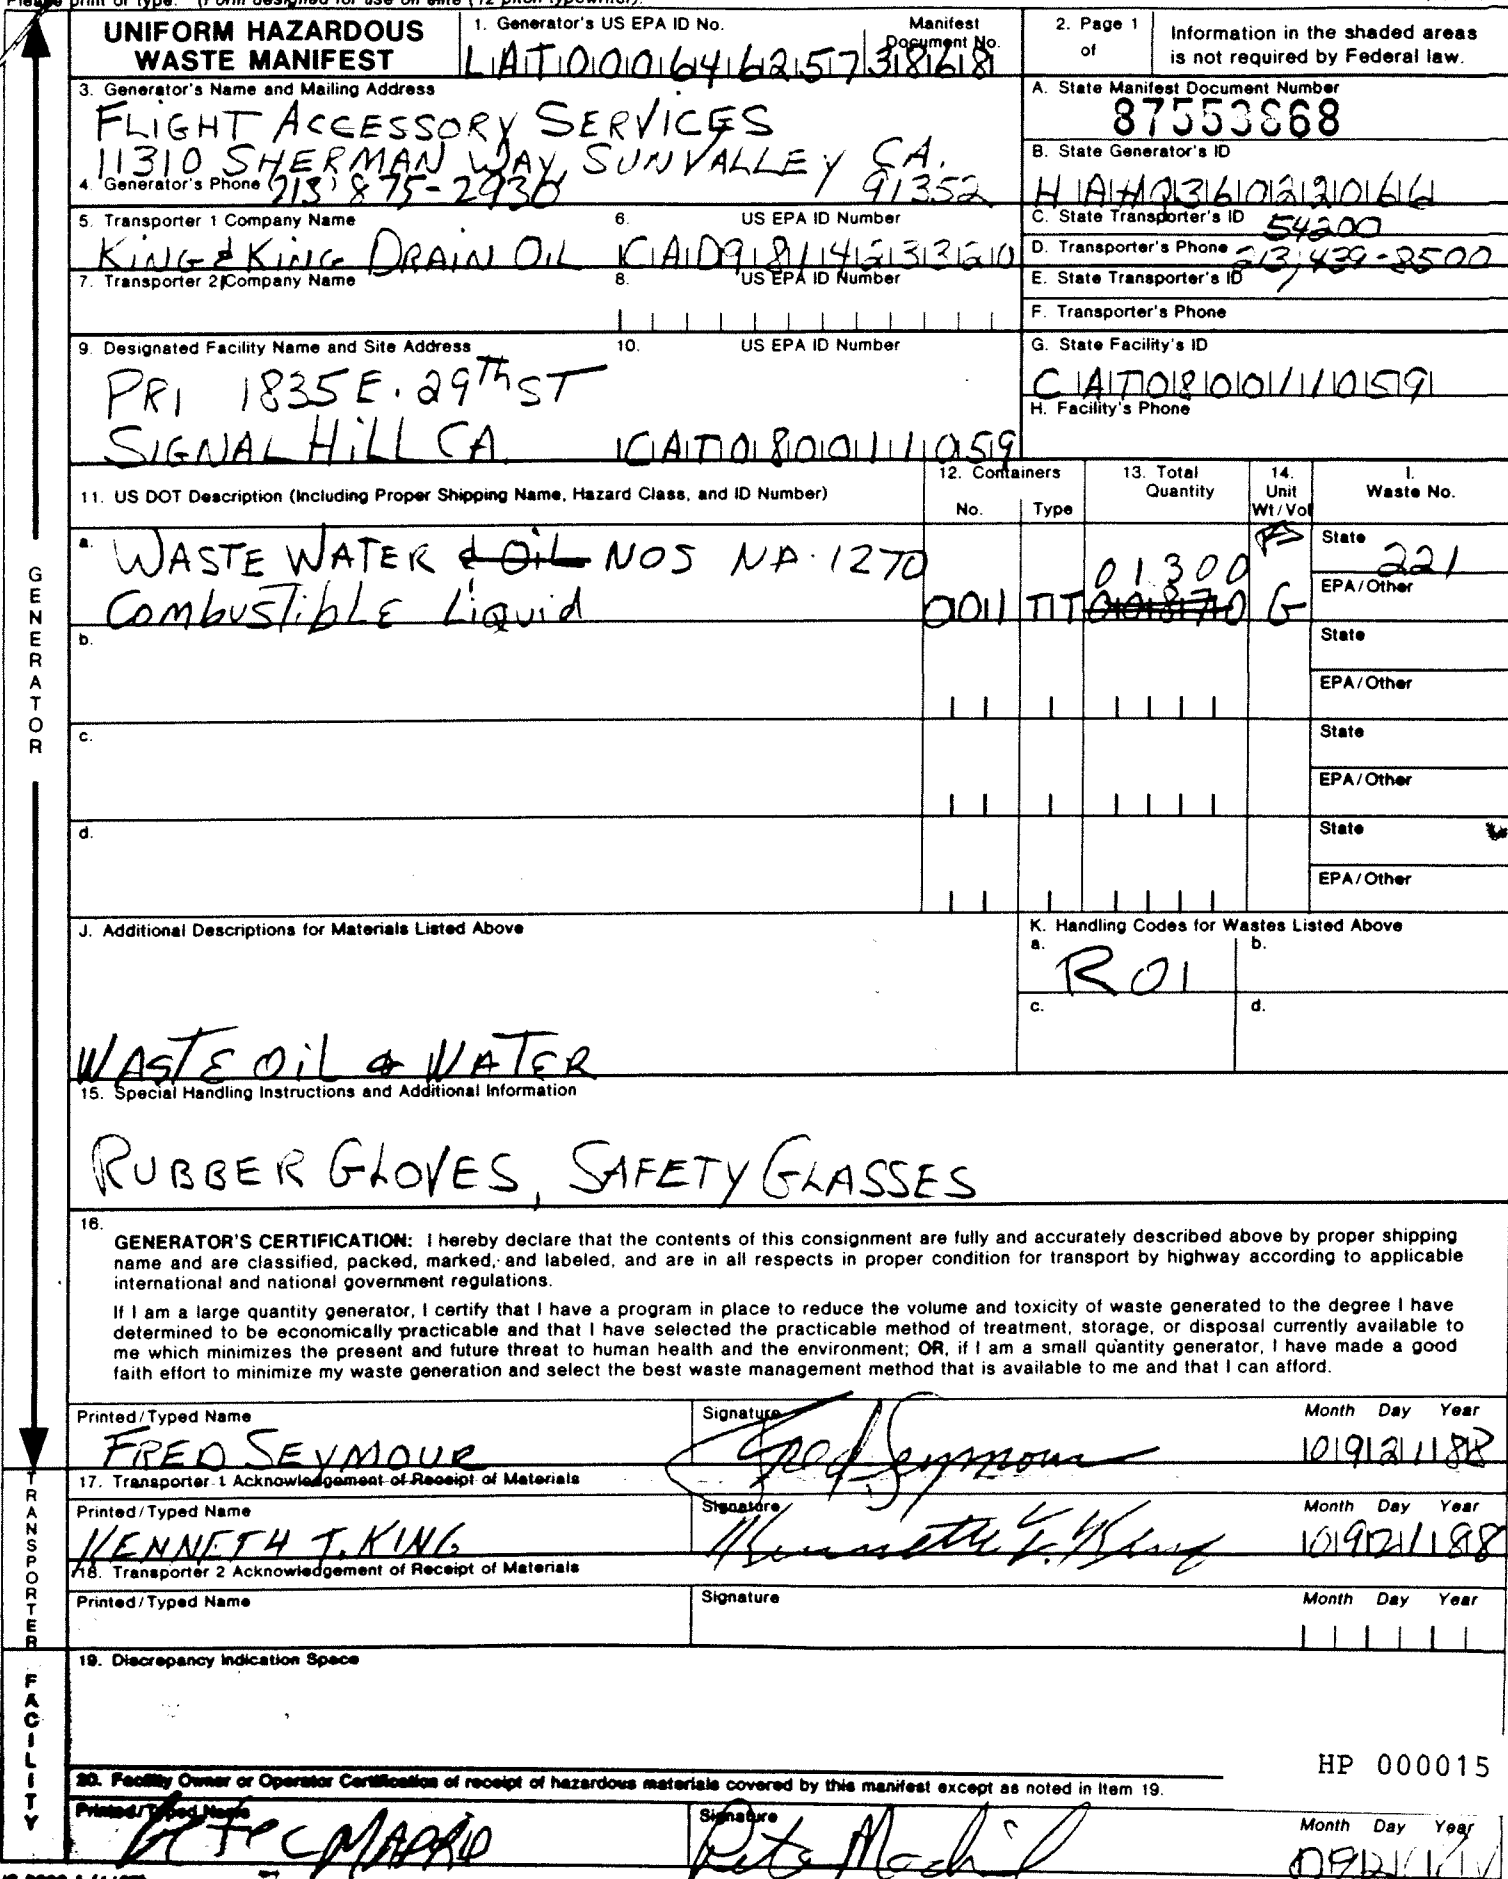 Please print or type. (Form designed for use on elite (12-pitch typewriter).
UNIFORM HAZARDOUS
WASTE MANIFEST
1. Generator's US EPA ID No.
Manifest
Document No.
LAT000646257 38681
2. Page 1
of
Information in the shaded areas
is not required by Federal law.
3. Generator's Name and Mailing Address
FLIGHT ACCESSORY SERVICES
11310 SHERMAN WAY, SUNVALLEY CA.
91352
4. Generator's Phone (213) 875-2930
A. State Manifest Document Number
87553868
B. State Generator's ID
HAHQ36022066
5. Transporter 1 Company Name
6. US EPA ID Number
KING & KING DRAIN OIL CAD981423320
C. State Transporter's ID 54200
D. Transporter's Phone 213, 439-8500
7. Transporter 2 Company Name
8. US EPA ID Number
E. State Transporter's ID
F. Transporter's Phone
9. Designated Facility Name and Site Address
10. US EPA ID Number
PRI 1835 E. 29th ST
SIGNAL HILL CA. CAT080011059
G. State Facility's ID
CAT080011059
H. Facility's Phone
11. US DOT Description (Including Proper Shipping Name, Hazard Class, and ID Number)
12. Containers
No. Type
13. Total
Quantity
14.
Unit
Wt/Vol
I.
Waste No.
a. WASTE WATER & OIL NOS NA. 1270
COMBUSTIBLE LIQUID
001 TT
01300
00870 G
FS
State 221
EPA/Other
b.
State
EPA/Other
c.
State
EPA/Other
d.
State
EPA/Other
J. Additional Descriptions for Materials Listed Above
WASTE OIL & WATER
K. Handling Codes for Wastes Listed Above
a. R01
b.
c.
d.
15. Special Handling Instructions and Additional Information
RUBBER GLOVES, SAFETY GLASSES
16.
GENERATOR'S CERTIFICATION: I hereby declare that the contents of this consignment are fully and accurately described above by proper shipping
name and are classified, packed, marked, and labeled, and are in all respects in proper condition for transport by highway according to applicable
international and national government regulations.
If I am a large quantity generator, I certify that I have a program in place to reduce the volume and toxicity of waste generated to the degree I have
determined to be economically practicable and that I have selected the practicable method of treatment, storage, or disposal currently available to
me which minimizes the present and future threat to human health and the environment; OR, if I am a small quantity generator, I have made a good
faith effort to minimize my waste generation and select the best waste management method that is available to me and that I can afford.
Printed/Typed Name
FRED SEYMOUR
Signature
Fred Seymour
Month Day Year
092188
17. Transporter 1 Acknowledgement of Receipt of Materials
Printed/Typed Name
KENNETH T. KING
Signature
Kenneth T. King
Month Day Year
092188
18. Transporter 2 Acknowledgement of Receipt of Materials
Printed/Typed Name
Signature
Month Day Year
19. Discrepancy Indication Space
HP 000015
20. Facility Owner or Operator Certification of receipt of hazardous materials covered by this manifest except as noted in Item 19.
Printed/Typed Name
PETE MADRID
Signature
Pete Madrid
Month Day Year
GENERATOR
TRANSPORTER
FACILITY